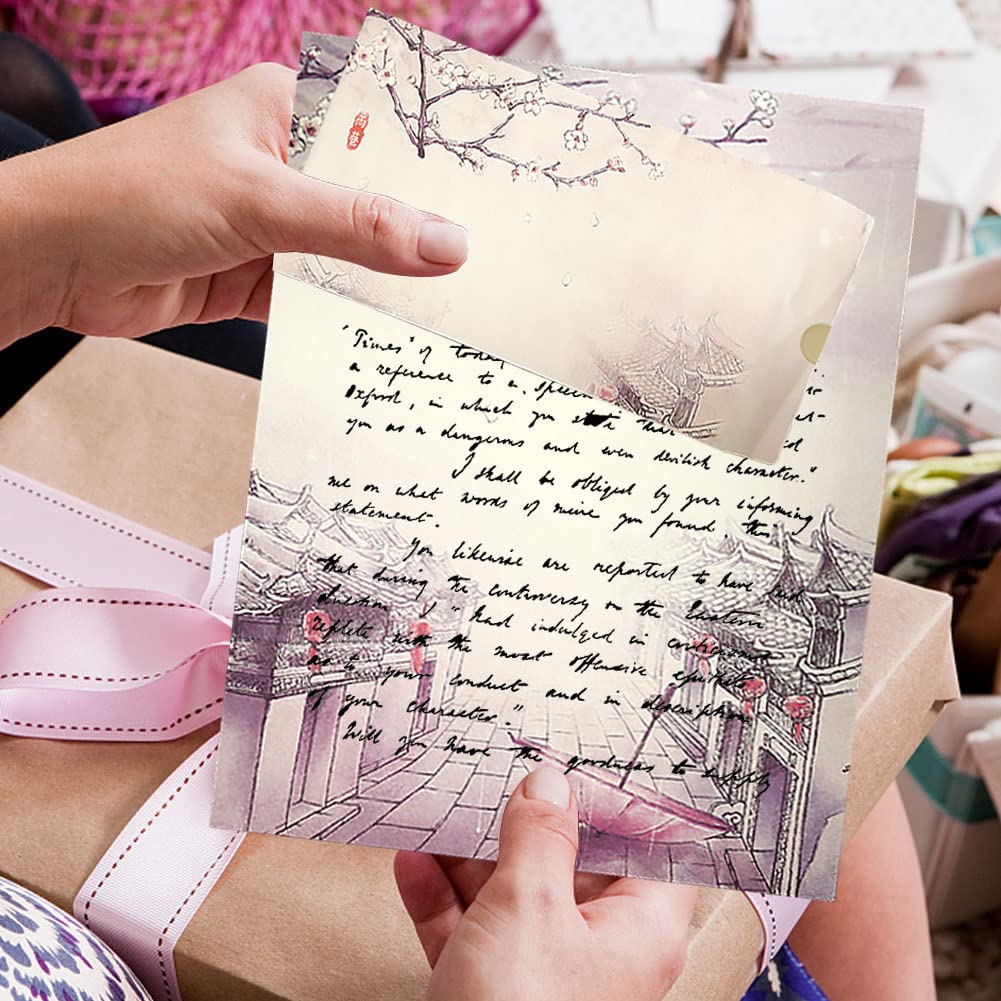 'Times' of today
a reference to a speec
Oxford, in which you state that
you as a dangerous and even devilish character."
I shall be obliged by your informing
me on what words of mine you found this
statement.
You likewise are reported to have said
that during the controversy on the Eastern
question I "had indulged in criticisms
replete with the most offensive epithets
as to your conduct and in description
of your character."
Will you have the goodness to supply